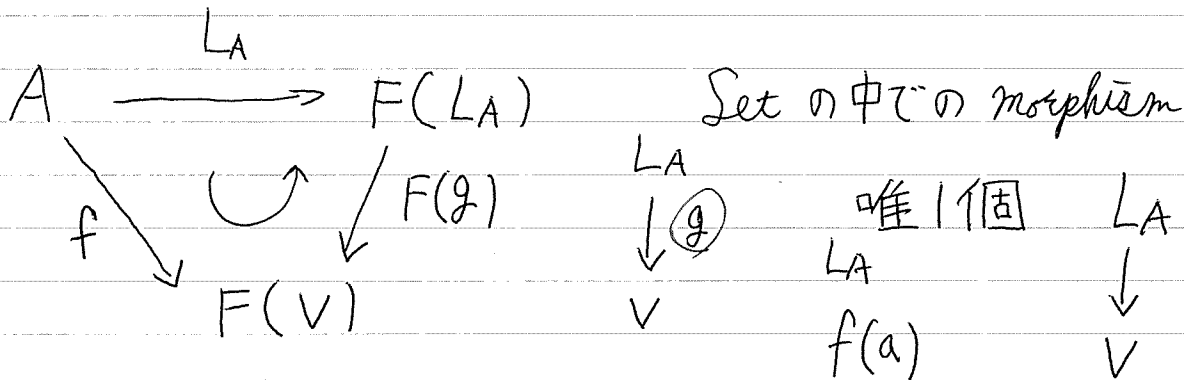 L_A
A → F(L_A) Set の中での morphism
f F(g) L_A ↓ g 唯1個 L_A
F(V) V L_A ↓
f(a) V